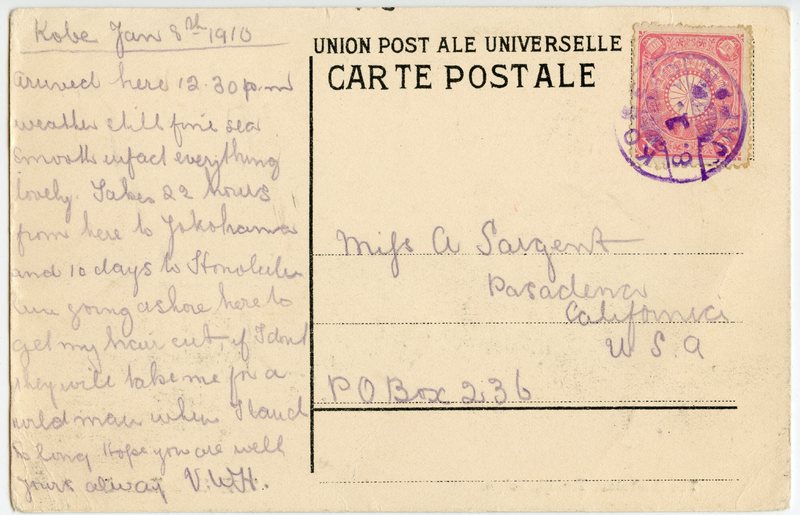 Kobe Jan 8th 1910
arrived here 12.30 p.m
weather still fine sea
smooth infact everything
lovely. Takes 22 hours
from here to Yokohama
and 10 days to Honolulu
am going ashore here to
get my hair cut, if I dont
they will take me for a
wild man when I land
So long Hope you are well
yours alway V.W.H.
UNION POSTALE UNIVERSELLE
CARTE POSTALE
Miss A Sargent
Pasadena
California
U S A
P O Box 236